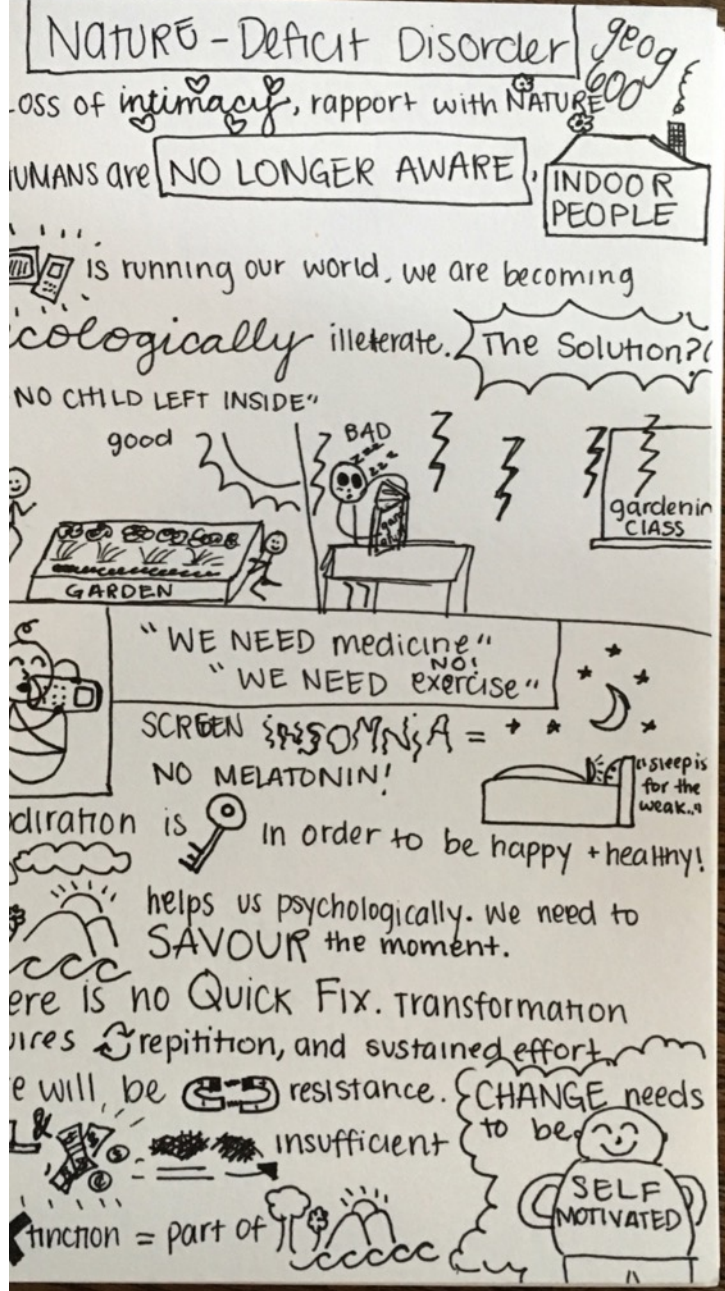 Nature-Deficit Disorder
geog
600
Loss of intimacy, rapport with NATURE
HUMANS are NO LONGER AWARE,
INDOOR
PEOPLE
is running our world. we are becoming
ecologically illeterate. The Solution?
NO CHILD LEFT INSIDE"
good
BAD
zzz
zzz
gardenin
CLASS
GARDEN
"WE NEED medicine"
NO!
"WE NEED exercise"
SCREEN INSOMNIA =
NO MELATONIN!
"sleep is
for the
weak.."
diration is in order to be happy + healthy!
helps us psychologically. we need to
SAVOUR the moment.
ere is no Quick Fix. Transformation
uires repitition, and sustained effort
e will be resistance.
CHANGE needs
to be
SELF
MOTIVATED
& insufficient
tinction = part of